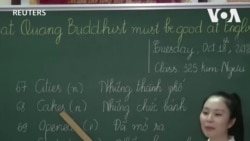 REUTERS
VOA
at Quang Buddhist must be good at English
Tuesday, Oct 18, 20
Class: 325 Kim Ngưu
67 Cities (n) Những thành phố
68 Cakes (n) Những chiếc bánh
69 Opened (v) Đã mở ra